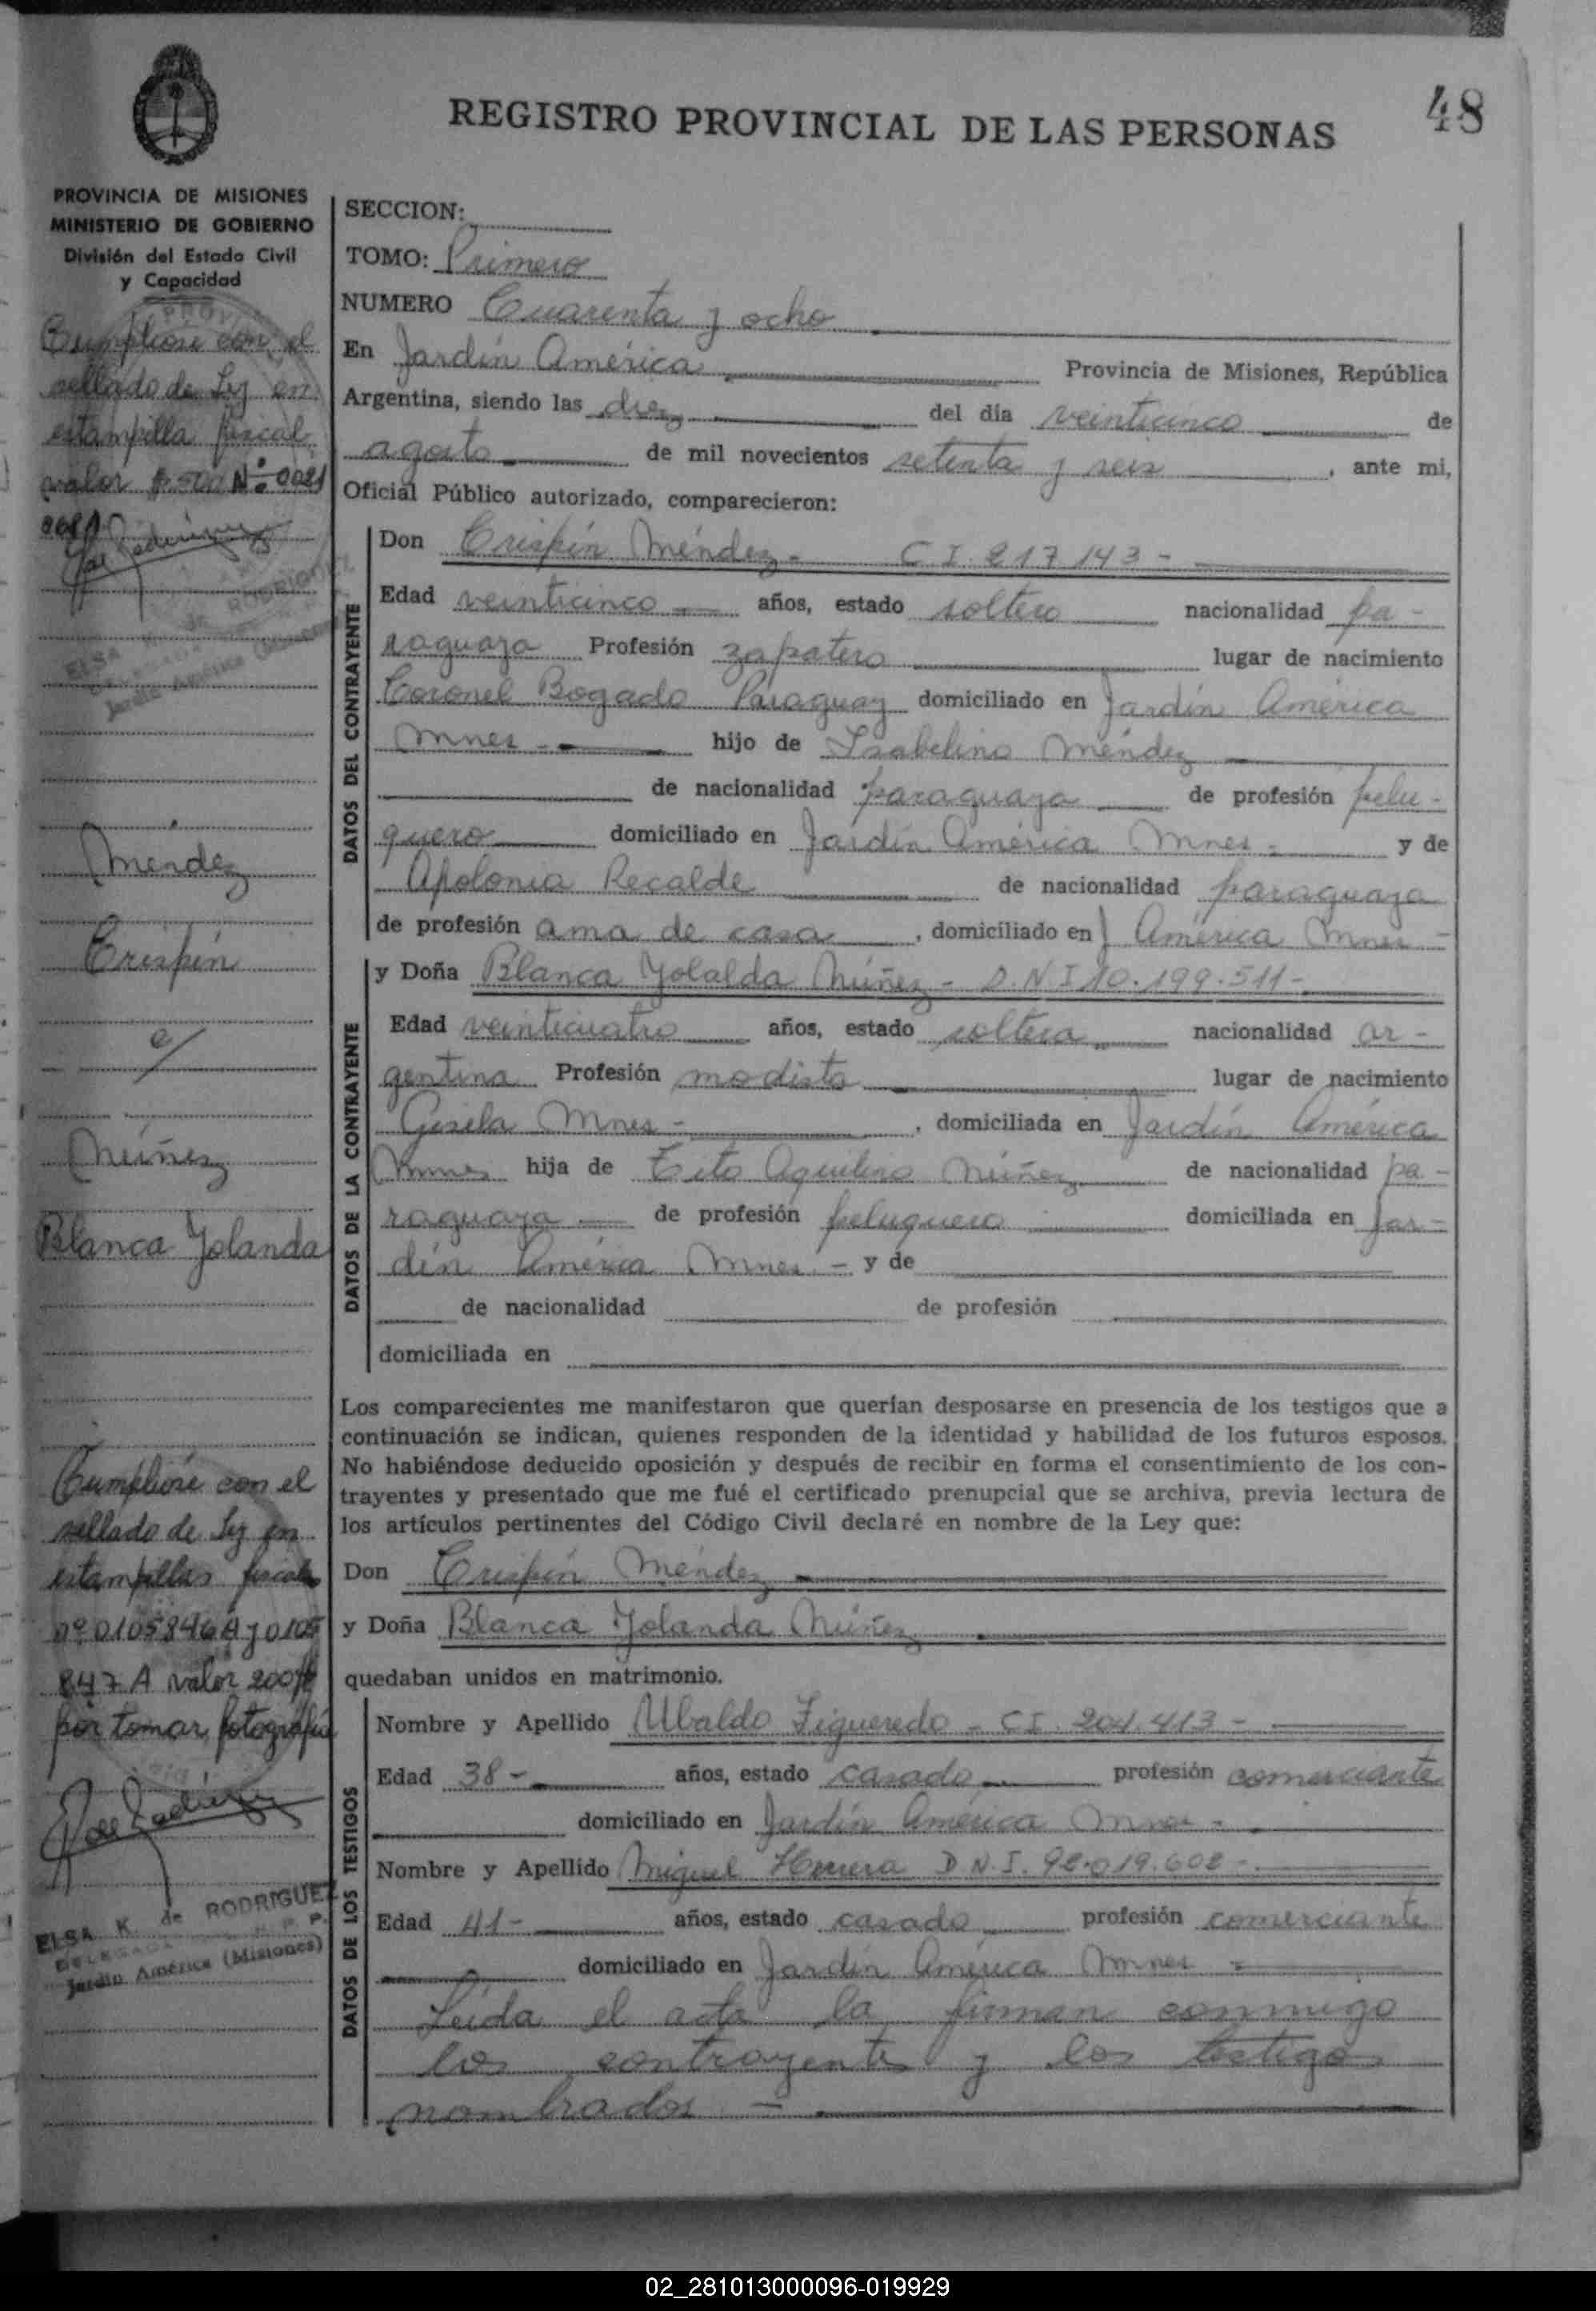 48
REGISTRO PROVINCIAL DE LAS PERSONAS
PROVINCIA DE MISIONES
MINISTERIO DE GOBIERNO
División del Estado Civil
y Capacidad
Cumplióse con el
sellado de Ley en
estampilla fiscal
valor $500 Nº 0021
Méndez
Crispín
e/
Núñez
Blanca Yolanda
Cumplióse con el
sellado de Ley en
estampillas fiscales
nº 0105846A y 0105
847 A valor 200$
por tomar fotografía
ELSA K. de RODRIGUEZ
DELEGADA R. P. P.
Jardín América (Misiones)
SECCION:
TOMO: Primero
NUMERO Cuarenta y ocho
En Jardín América Provincia de Misiones, República
Argentina, siendo las diez del día veinticinco de
agosto de mil novecientos setenta y seis, ante mi,
Oficial Público autorizado, comparecieron:
DATOS DEL CONTRAYENTE
Don Crispín Méndez- C I 217 143 -
Edad veinticinco años, estado soltero nacionalidad pa-
raguaya Profesión zapatero lugar de nacimiento
Coronel Bogado Paraguay domiciliado en Jardín América
Mnes - hijo de Isabelino Méndez
de nacionalidad paraguaya de profesión pelu-
quero domiciliado en Jardín América Mnes - y de
Apolonia Recalde de nacionalidad paraguaya
de profesión ama de casa, domiciliado en J América Mnes -
DATOS DE LA CONTRAYENTE
y Doña Blanca Yolalda Núñez - D.N.I 10.199.511-
Edad veinticuatro años, estado soltera nacionalidad ar-
gentina Profesión modista lugar de nacimiento
Gisela Mnes -, domiciliada en Jardín América
Mnes hija de Tito Aquilino Núñez de nacionalidad pa-
raguaya de profesión peluquero domiciliada en Jar-
dín América Mnes - y de
de nacionalidad de profesión
domiciliada en
Los comparecientes me manifestaron que querían desposarse en presencia de los testigos que a
continuación se indican, quienes responden de la identidad y habilidad de los futuros esposos.
No habiéndose deducido oposición y después de recibir en forma el consentimiento de los con-
trayentes y presentado que me fué el certificado prenupcial que se archiva, previa lectura de
los artículos pertinentes del Código Civil declaré en nombre de la Ley que:
Don Crispín Méndez
y Doña Blanca Yolanda Núñez
quedaban unidos en matrimonio.
DATOS DE LOS TESTIGOS
Nombre y Apellido Ubaldo Figueredo - CI. 204.413 -
Edad 38- años, estado casado profesión comerciante
domiciliado en Jardín América Mnes -
Nombre y Apellido Miguel Herrera D.N.I. 92.019.602 -
Edad 41- años, estado casado profesión comerciante
domiciliado en Jardín América Mnes -
Leída el acta la firman conmigo
los contrayentes y los testigos
nombrados -
02_281013000096-019929